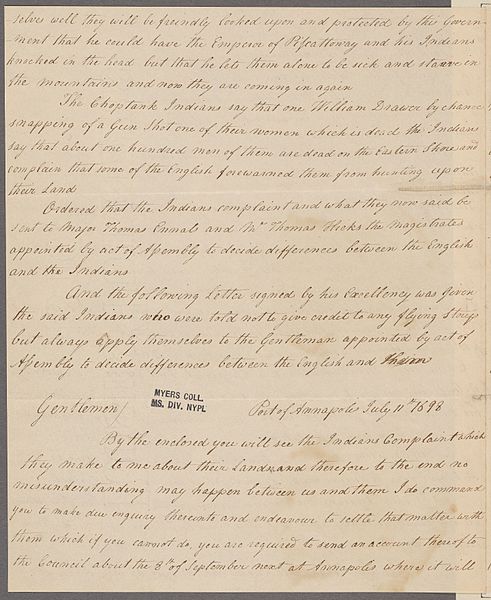 selves well they will be freindly looked upon and protected by this Govern-
-ment that he could have the Emperor of Piscattoway and his Indians
knocked in the head but that he lets them alone to be sick and starve in
the mountains and now they are coming in again
The Choptank Indians say that one William Drawer by chance
snapping of a Gun Shot one of their women which is dead the Indians
say that about one hundred men of them are dead on the Eastern Shore and
complain that some of the English forewarned them from hunting upon
their Land
Ordered that the Indians complaint and what they now said be
sent to Major Thomas Ennals and Mr Thomas Hicks the magistrates
appointed by act of Assembly to decide differences between the English
and the Indians
And the following Letter signed by his Excellency was given
the said Indians who were told not to give credit to any flying
but always apply themselves to the Gentleman appointed by act of
Assembly to decide differences between the English and them
MYERS COLL.
MS. DIV. NYPL
Gentlemen/ Port of Annapoles July 11th 1698
By the enclosed you will see the Indians Complaint which
they make to me about their Lands and therefore to the end no
misunderstanding may happen between us and them I do command
you to make due enquiry thereunto and endeavour to settle that matter with
them which if you cannot do, you are required to send an account thereof to
the Council about the 8th of September next at Annapoles where it will